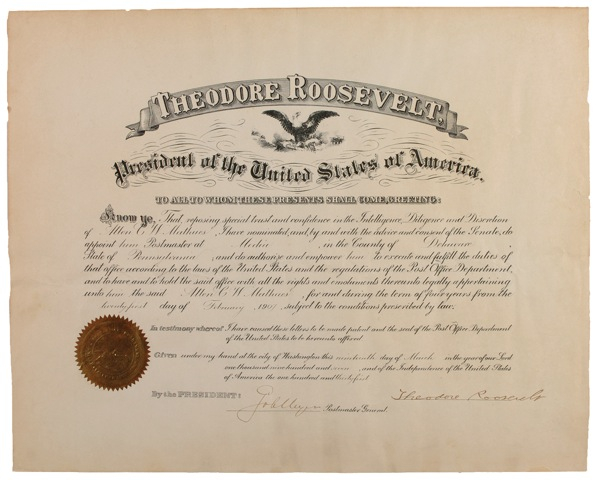 THEODORE ROOSEVELT,
President of the United States of America,
TO ALL TO WHOM THESE PRESENTS SHALL COME, GREETING:
Know ye, That, reposing special trust and confidence in the Intelligence, Diligence and Discretion
of I have nominated, and, by and with the advice and consent of the Senate, do
appoint him Postmaster at , in the County of Delaware ,
State of Pennsylvania , and do authorize and empower him to execute and fulfill the duties of
that office according to the laws of the United States and the regulations of the Post Office Department,
and to have and to hold the said office with all the rights and emoluments thereunto legally appertaining
unto him the said , for and during the term of four years from the
day of February , 1907 , subject to the conditions prescribed by law.
In testimony whereof I have caused these letters to be made patent and the seal of the Post Office Department
of the United States to be hereunto affixed.
Given under my hand at the city of Washington this nineteenth day of March in the year of our Lord
one thousand nine hundred and seven , and of the Independence of the United States
of America the one hundred and thirty first
By the PRESIDENT: Theodore Roosevelt
Postmaster General.